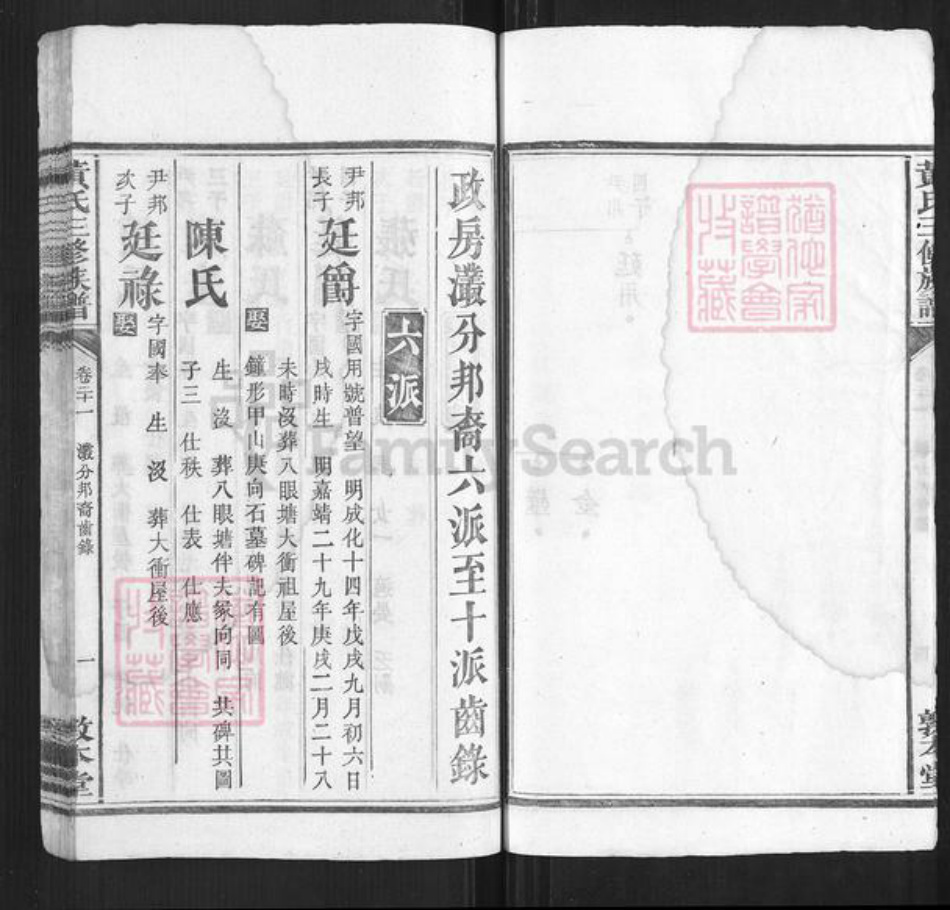 政房灇分邦裔六派至十派齒錄
六派
尹邦
長子
廷爵
字國用號普望 明成化十四年戊戌九月初六日
戌時生 明嘉靖二十九年庚戌二月二十八
未時沒葬八眼塘大衝祖屋後
鐘形甲山庚向石墓碑記有圖
娶
陳氏
生 沒 葬八眼塘伴夫冢向同 共碑共圖
子三 仕秩 仕表 仕應
尹邦
次子
廷祿
字國奉 生 沒 葬大衝屋後
娶
黃氏三修族譜
卷二十一
灇分邦裔齒錄
一
敦本堂
黃氏三修族譜
敦本堂
猶他家譜學會收藏
猶他家譜學會收藏
FamilySearch